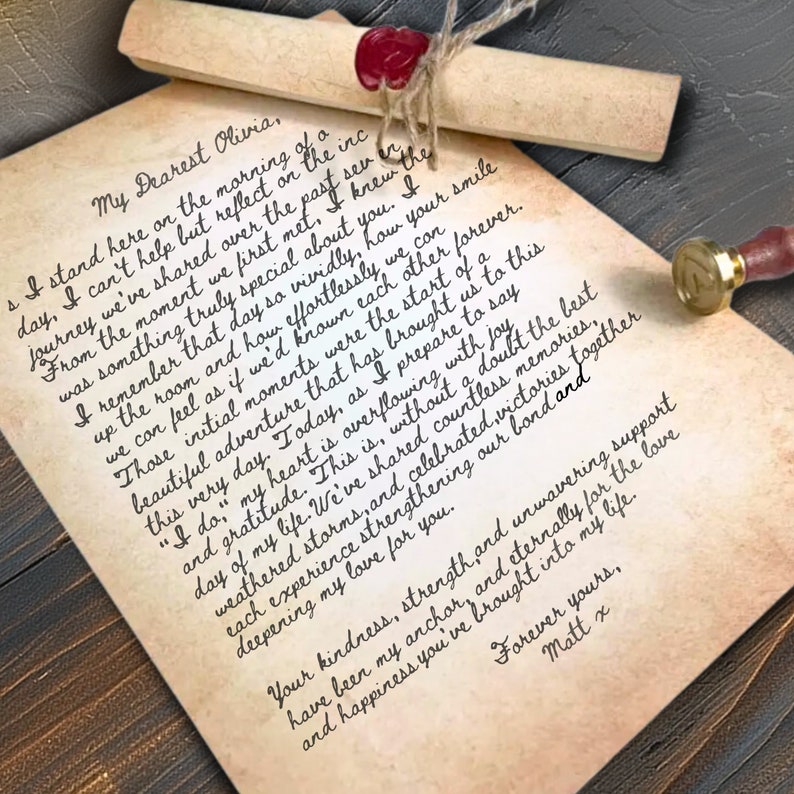 My Dearest Olivia,
s I stand here on the morning of a
day, I can't help but reflect on the inc
journey we've shared over the past sev en
From the moment we first met, I knew the
was something truly special about you. I
I remember that day so vividly, how your smile
up the room and how effortlessly we con
we can feel as if we'd known each other forever.
Those initial moments were the start of a
beautiful adventure that has brought us to this
this very day. Today, as I prepare to say
"I do," my heart is overflowing with joy
and gratitude. This is, without a doubt the best
day of my life. We've shared countless memories,
weathered storms, and celebrated, victories together
each experience strengthening our bond and
deepening my love for you.
Your kindness, strength, and unwavering support
have been my anchor, and eternally for the love
and happiness you've brought into my life.
Forever yours,
Matt x